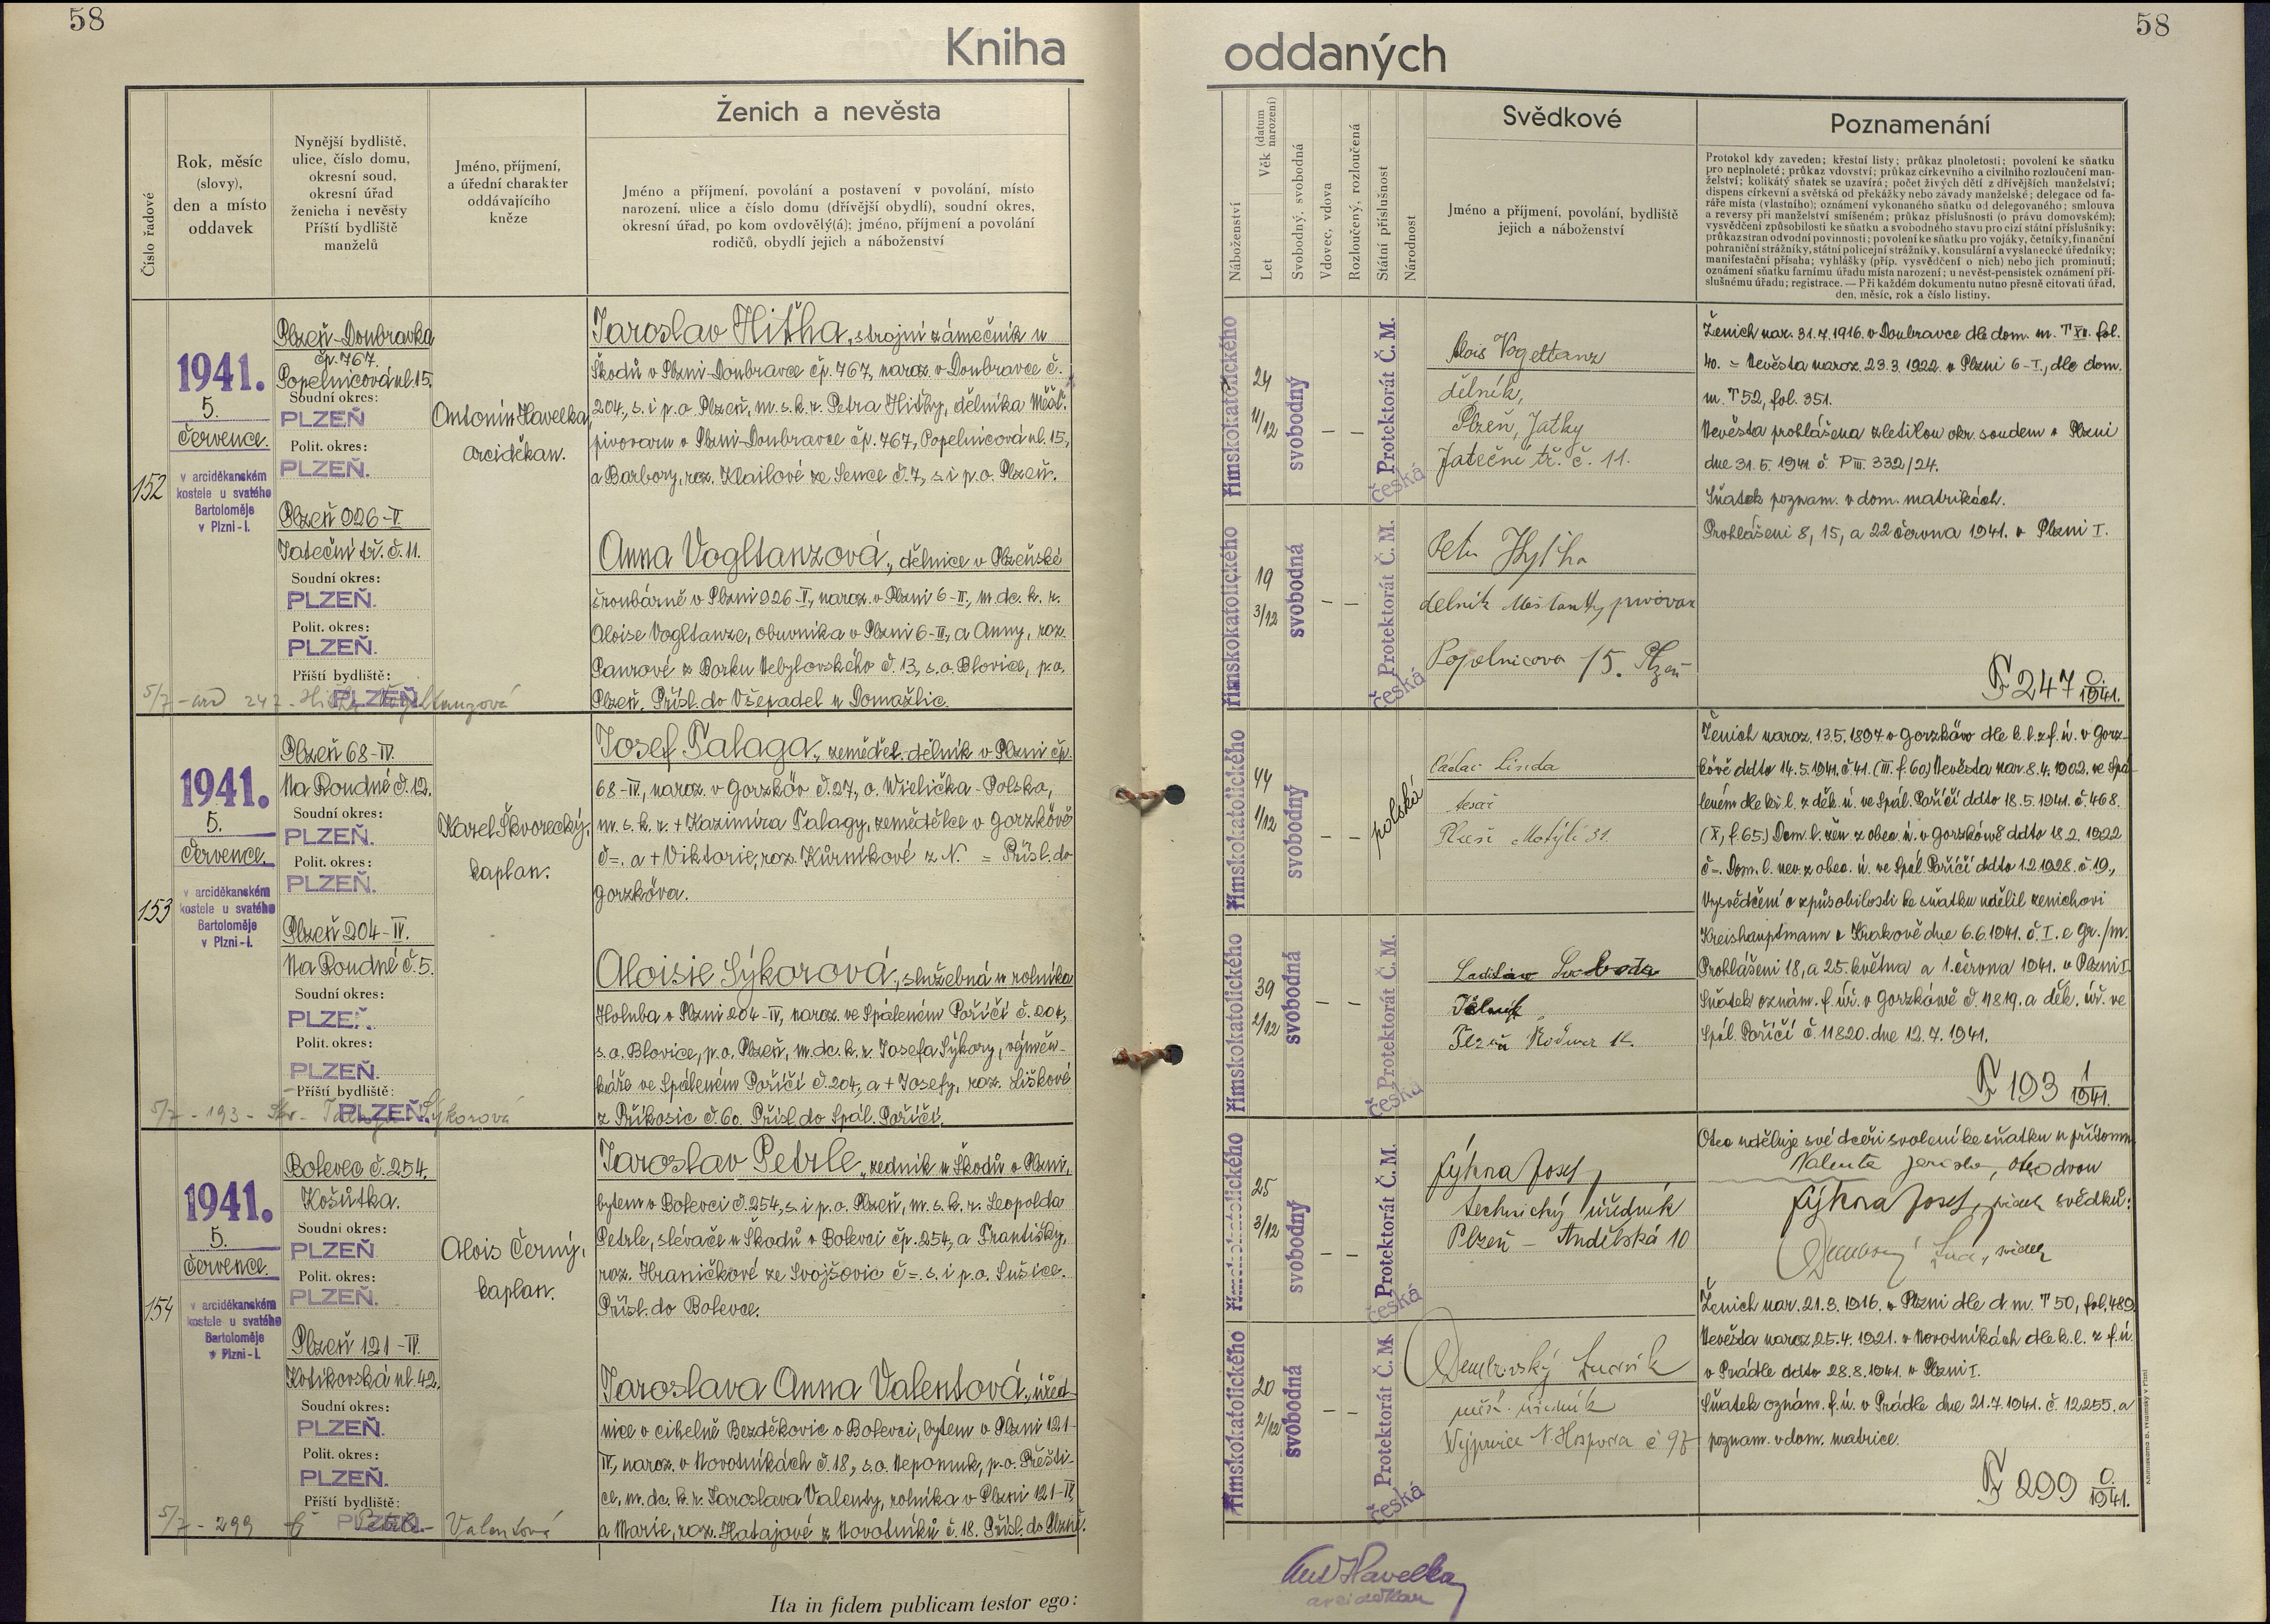 58
58
Kniha
oddaných
Číslo řadové
Rok, měsíc
(slovy),
den a místo
oddavek
Nynější bydliště,
ulice, číslo domu,
okresní soud,
okresní úřad
ženicha i nevěsty
Příští bydliště
manželů
Jméno, příjmení,
a úřední charakter
oddávajícího
kněze
Ženich a nevěsta
Jméno a příjmení, povolání a postavení v povolání, místo
narození, ulice a číslo domu (dřívější obydlí), soudní okres,
okresní úřad, po kom ovdověly(á); jméno, příjmení a povolání
rodičů, obydlí jejich a náboženství
Náboženství
Věk (datum narození)
Let
Svobodný, svobodná
Vdovec, vdova
Rozloučený, rozloučená
Státní příslušnost
Národnost
Svědkové
Jméno a příjmení, povolání, bydliště
jejich a náboženství
Poznamenání
Protokol kdy zaveden; křestní listy; průkaz plnoletosti; povolení ke sňatku
pro neplnoleté; průkaz vdovství; průkaz církevního a civilního rozloučení man-
želství; kolikátý sňatek se uzavírá; počet živých dětí z dřívějších manželství;
dispens církevní a světská od překážky nebo závady manželské; delegace od fa-
ráře místa (vlastního); oznámení vykonaného sňatku od delegovaného; smlouva
a reversy při manželství smíšeném; průkaz příslušnosti (o právu domovském);
vysvědčení způsobilosti ke sňatku a svobodného stavu pro cizí státní příslušníky;
průkaz stran odvodní povinnosti; povolení ke sňatku pro vojáky, četníky, finanční
pohraniční strážníky, státní policejní strážníky, konsulární a vyslanecké úředníky;
manifestační přísaha; vyhlášky (příp. vysvědčení o nich) nebo jich prominutí;
oznámení sňatku farnímu úřadu místa narození; u nevěst-pensistek oznámení pří-
slušnému úřadu; registrace. — Při každém dokumentu nutno přesně citovati úřad,
den, měsíc, rok a číslo listiny.
152
1941.
5.
července.
v arciděkanském
kostele u svatého
Bartoloměje
v Plzni-I.
Plzeň-Doubravka
čp. 767.
Popelnicová ul. 15.
Soudní okres:
PLZEŇ
Polit. okres:
PLZEŇ.
Plzeň 926-V
Jateční tř. č. 11.
Soudní okres:
PLZEŇ.
Polit. okres:
PLZEŇ.
Příští bydliště:
PLZEŇ.
5/7
Antonín Havelka,
arciděkan.
Jaroslav Hitha, strojní zámečník u
Škodů v Plzni-Doubravce čp. 767, naroz. v Doubravce č.
204, s. i p. o. Plzeň, m. s. k. r. Petra Hithy, dělníka Měšť.
pivovaru v Plzni-Doubravce čp. 767, Popelnicová ul. 15,
a Barbory, roz. Klailové ze Sence č. 7, s. i p. o. Plzeň.
Anna Vogltanzová, dělnice v Plzeňské
šroubárně v Plzni 926-V, naroz. v Plzni 6-II, m. dc. k. r.
Aloise Vogltanze, obuvníka v Plzni 6-II, a Anny, roz.
Paurové z Borku Nebylovského č. 13, s. o. Blovice, p. o.
Plzeň. Přísl. do Všepadel u Domažlic.
římskokatolického
24
11/12
svobodný
— —
Protektorát Č. M.
česká
římskokatolického
19
3/12
svobodná
— —
Protektorát Č. M.
česká
Alois Vogeltanz
dělník,
Plzeň, Jatky
Jateční tř. č. 11.
Petr Hytha
dělník Měšťanský pivovar
Popelnicova 15. Plzeň
Ženich nar. 31.7.1916. v Doubravce dle dom. m. T XII. fol.
40. = Nevěsta naroz. 23.3.1922. v Plzni 6-I, dle dom.
m. T 52, fol. 351.
Nevěsta prohlášena zletilou okr. soudem v Plzni
dne 31.5.1941 č. P III. 332/24.
Sňatek poznam. v dom. matrikách.
Prohlášení 8, 15, a 22 června 1941. v Plzni I.
F 247 0/1941.
153
1941.
5.
července.
v arciděkanském
kostele u svatého
Bartoloměje
v Plzni-I.
Plzeň 68-IV.
Na Roudné č. 12.
Soudní okres:
PLZEŇ.
Polit. okres:
PLZEŇ.
Plzeň 204-IV.
Na Roudné č. 5.
Soudní okres:
PLZEŇ.
Polit. okres:
PLZEŇ.
Příští bydliště:
PLZEŇ.
5/7 - 193 - Sýkorová
Karel Škvorecký,
kaplan.
Josef Talaga, zeměděl. dělník v Plzni čp.
68-IV, naroz. v Gorzków č. 27, o. Wielička-Polsko,
m. s. k. r. + Kazimíra Talagy, zemědělce v Gorzkówě
č=. a + Viktorie, roz. Kůrnikové z N. = Přísl. do
Gorzkówa.
Aloisie Sýkorová, služebná u rolníka
Holuba v Plzni 204-IV, naroz. ve Spáleném Poříčí č. 204,
s. o. Blovice, p. o. Plzeň, m. dc. k. r. Josefa Sýkory, výměn-
káře ve Spáleném Poříčí č. 204, a + Josefy, roz. Liškové
z Příkosic č. 60. Přísl. do Spál. Poříčí.
římskokatolického
44
1/12
svobodný
— —
polská
římskokatolického
39
2/12
svobodná
— —
Protektorát Č. M.
česká
Václav Linda
tesař
Plzeň Motýlí 31
Ladislav Svoboda
Dělník
Plzeň
Ženich naroz. 13.5.1897 v Gorzków dle k. l. z f. ú. v Gorz-
kówě ddto 14.5.1941. č. 41. (III. f. 60) Nevěsta nar. 8.4.1902. ve Spá-
leném dle kř. l. z děk. ú. ve Spál. Poříčí ddto 18.5.1941. č. 468.
(X, f. 65.) Dom. l. žen. z obec. ú. v Gorzkówě ddto 18.2.1922
č=. Dom. l. nev. z obec. ú. ve Spál. Poříčí ddto 1.2.1928. č. 19.,
Vysvědčení o způsobilosti ke sňatku udělil ženichovi
Kreishauptmann v Krakově dne 6.6.1941. č. I. e Gr./m.
Prohlášení 18, a 25. května a 1. června 1941. v Plzni I.
Sňatek oznám. f. úř. v Gorzkówě č. 11819. a děk. úř. ve
Spál. Poříčí č. 11820. dne 12.7.1941.
F 193 1/1941.
154
1941.
5.
července.
v arciděkanském
kostele u svatého
Bartoloměje
v Plzni-I.
Bolevec č. 254.
Košůtka.
Soudní okres:
PLZEŇ
Polit. okres:
PLZEŇ.
Plzeň 121-IV.
Kotíkovská ul. 42.
Soudní okres:
PLZEŇ.
Polit. okres:
PLZEŇ.
Příští bydliště:
PLZEŇ.
5/7 - 299 Petrle - Valentová
Alois Černý,
kaplan.
Jaroslav Petrle, zedník u Škodů v Plzni,
bytem v Bolevci č. 254, s. i p. o. Plzeň, m. s. k. r. Leopolda
Petrle, slévače u Škodů v Bolevci čp. 254, a Františky,
roz. Hraničkové ze Svojšovic č=. s. i p. o. Sušice.
Přísl. do Bolevce.
Jaroslava Anna Valentová, úřed-
nice v cihelně Bezděkovic v Bolevci, bytem v Plzni 121-
IV, naroz. v Novotníkách č. 18, s. o. Nepomuk, p. o. Přešti-
ce, m. dc. k. r. Jaroslava Valenty, rolníka v Plzni 121-IV,
a Marie, roz. Hatajové z Novotníků č. 18. Přísl. do Plzně.
římskokatolického
25
3/12
svobodný
— —
Protektorát Č. M.
česká
římskokatolického
20
2/12
svobodná
— —
Protektorát Č. M.
česká
Sýkora Josef,
technický úředník
Plzeň - Andělská 10
Dembovský Ludvík
úředník
Otec uděluje své dceři svolení ke sňatku u přítomn.
Valenta Jaroslav, otec dvou
Sýkora Josef, svědek svědků:
svědek
Ženich nar. 21.3.1916. v Plzni dle d. m. T 50, fol. 489.
Nevěsta naroz. 25.4.1921. v Novotníkách dle k. l. z f. ú.
v Prádle ddto 28.8.1941. v Plzni I.
Sňatek oznám. f. ú. v Prádle dne 21.7.1941. č. 12255. a
poznam. v dom. matrice.
F 299 0/1941.
Ita in fidem publicam testor ego:
Ant Havelka
arciděkan